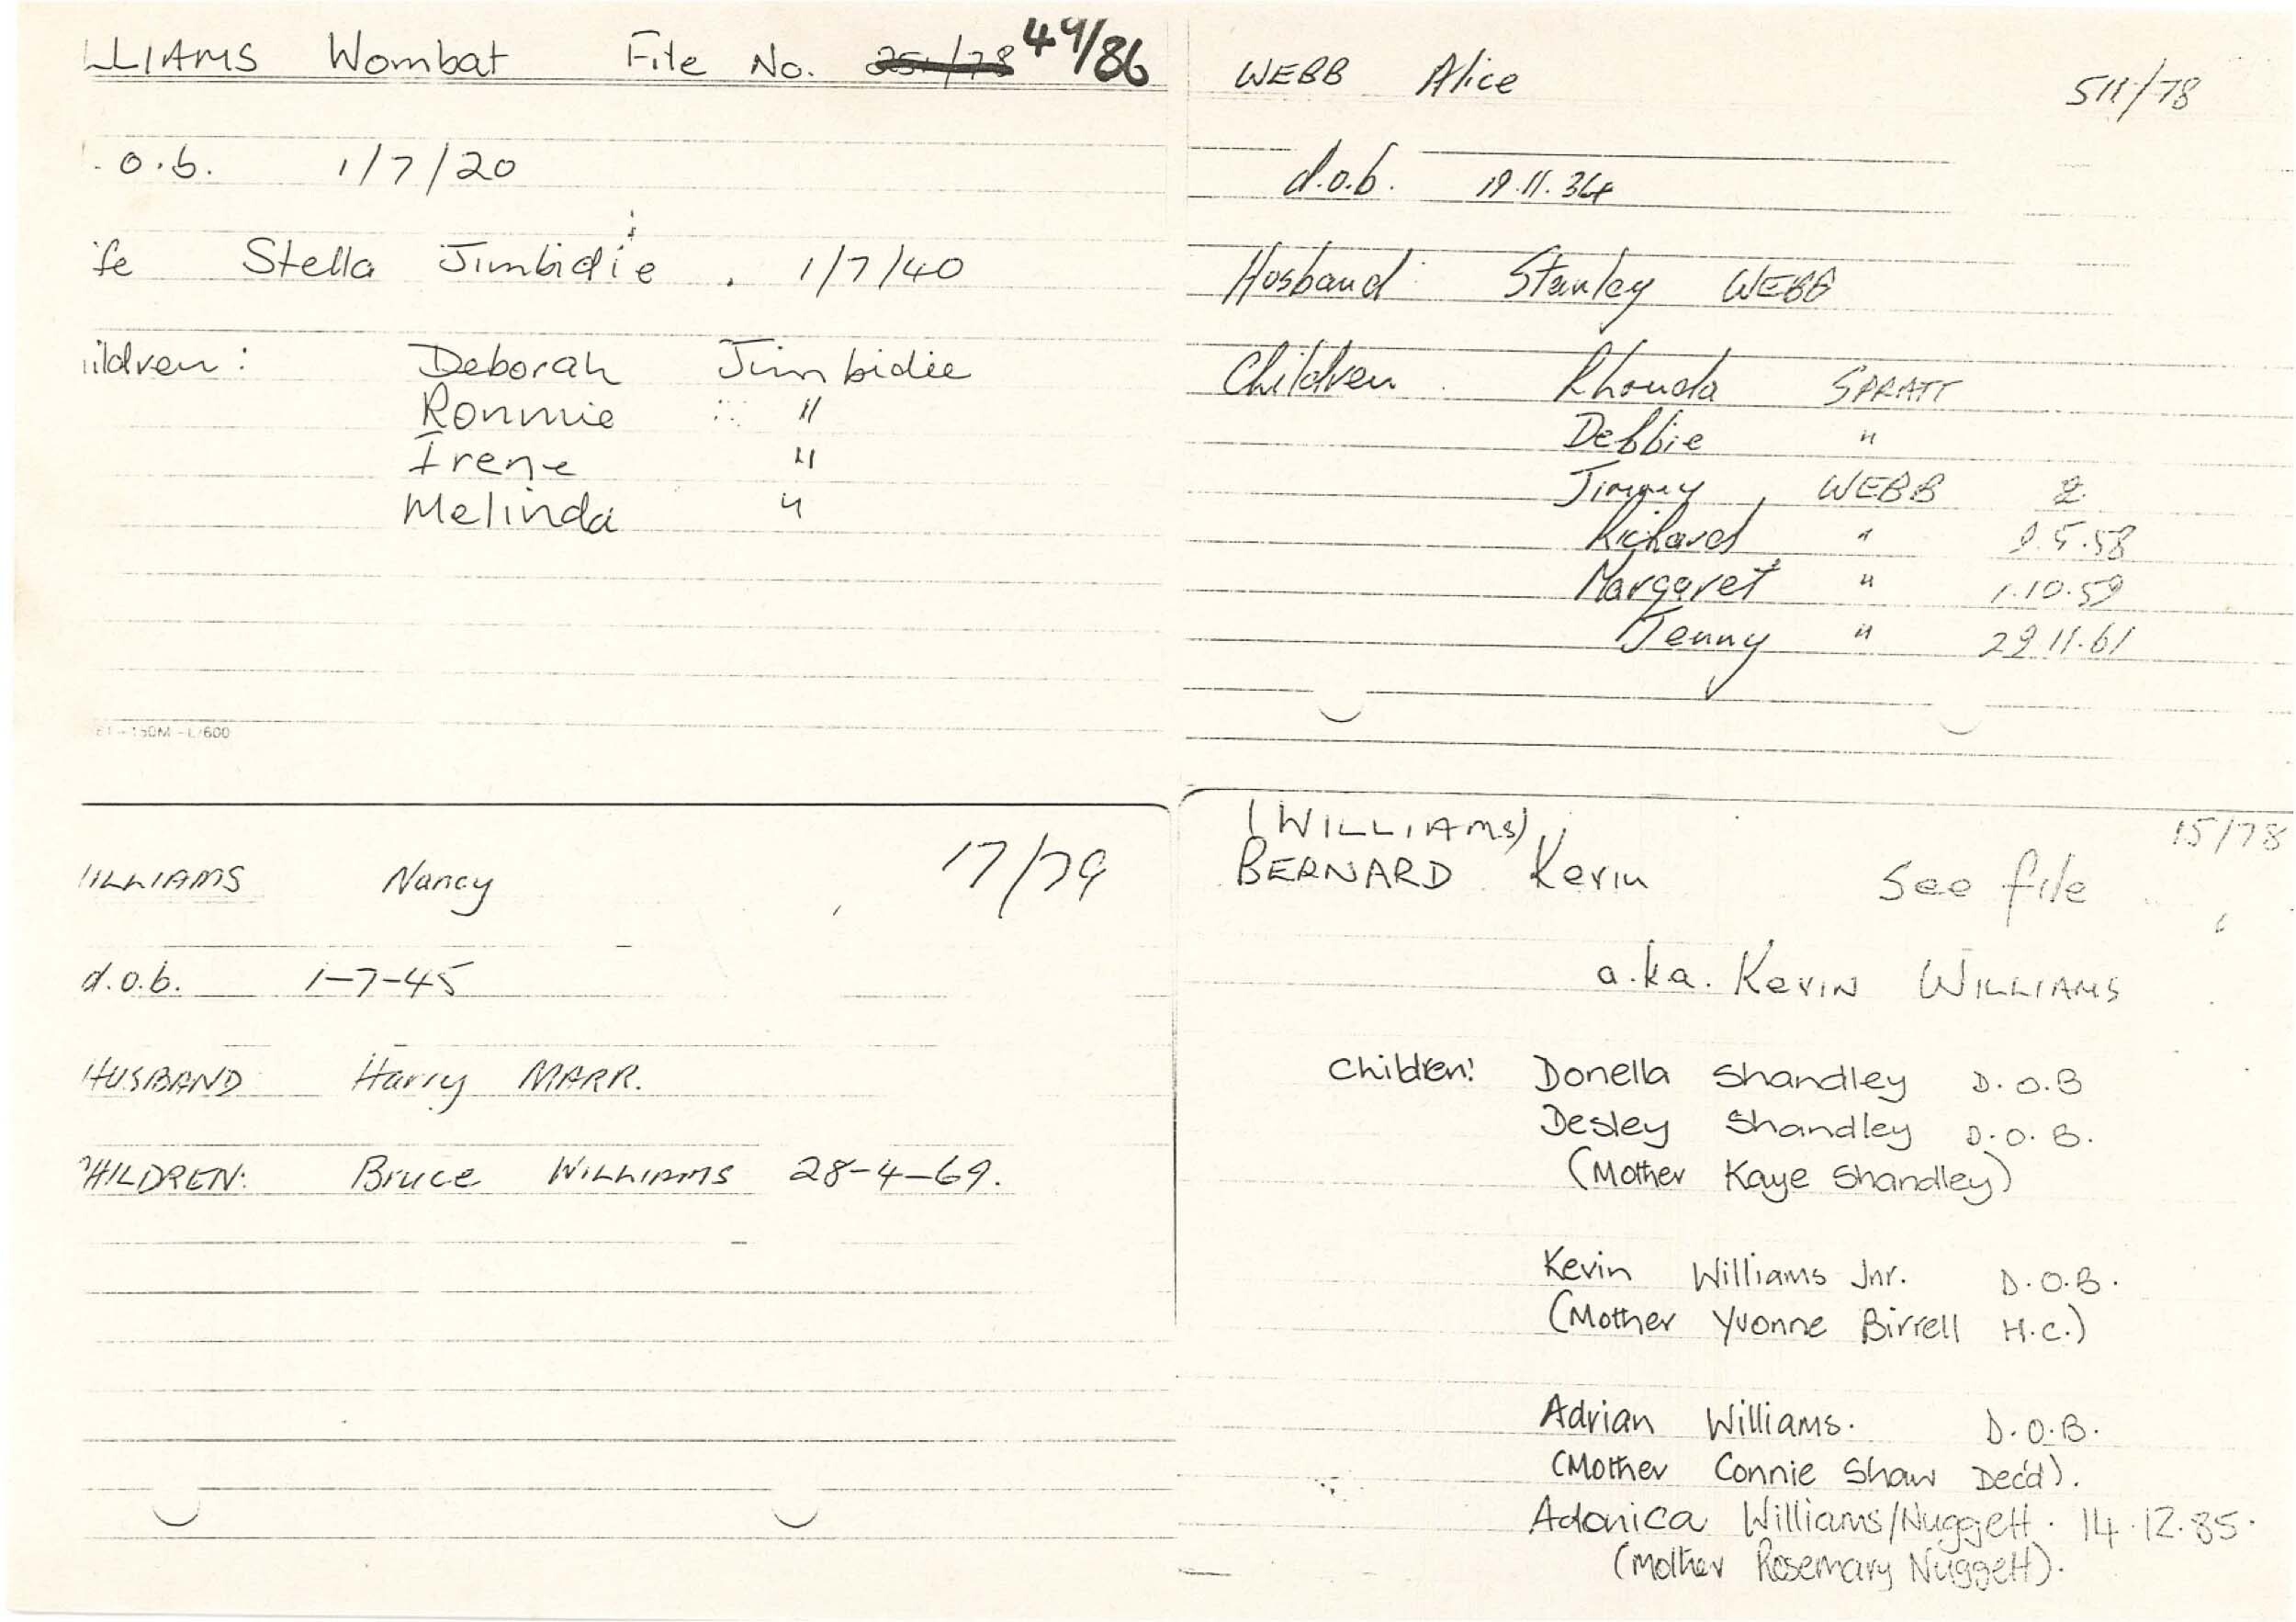 LLIAMS Wombat File No. 251/78 49/86
. o.b. 1/7/20
ife Stella Jimbidie . 1/7/40
ildren: Deborah Jimbidie
Ronnie "
Irene "
Melinda "
WEBB Alice 511/78
d.o.b. 19.11.34
Husband: Stanley WEBB
Children Rhonda SPRATT
Debbie "
Jimmy WEBB 2.
Richard " 9.5.58
Margaret " 1.10.59
Jenny " 29.11.61
WILLIAMS Nancy 17/79
d.o.b. 1-7-45
HUSBAND Harry MARR.
CHILDREN: Bruce WILLIAMS 28-4-69.
(WILLIAMS) 15/78
BERNARD Kevin See file
a.k.a. KEVIN WILLIAMS
Children: Donella Shandley D.O.B
Desley Shandley D.O.B.
(Mother Kaye Shandley)
Kevin Williams Jnr. D.O.B.
(Mother Yvonne Birrell H.C.)
Adrian Williams. D.O.B.
(Mother Connie Shaw Dec'd).
Adonica Williams/Nuggett. 14.12.85.
(Mother Rosemary Nuggett).